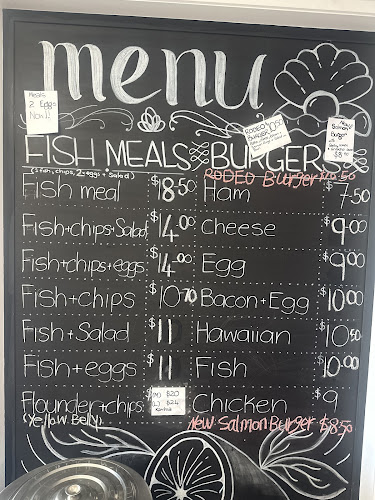 menu
Meals
2 Eggs
Now!!
RODEO
BURGER
Salmon
Burger
FISH MEALS
(1 fish, chips, 2 eggs + Salad)
BURGERS
RODEO Burger $10.50
Fish meal $18.50
Ham $7.50
Fish+chips+Salad $14.00
Cheese $9.00
Fish+chips+eggs $14.00
Egg $9.00
Fish+chips $10.70
Bacon+Egg $10.00
Fish+Salad $11
Hawaiian $10.50
Fish+eggs $11
Fish $10.00
Flounder+chips
(Yellow Belly)
$20
$24
Chicken $9
NEW Salmon Burger $8.50